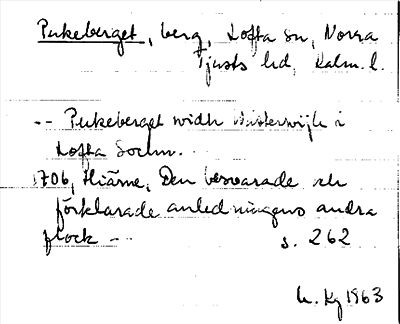 Pukeberget, berg, Lofta sn, Norra
Tjusts hd, Kalm. l.
-- Pukeberget widh Wästerwijk i
Lofta Sochn.
1706, Hiärne, Den beswarade och
förklarade anledningens andra
flock --                s. 262
Kg 1963